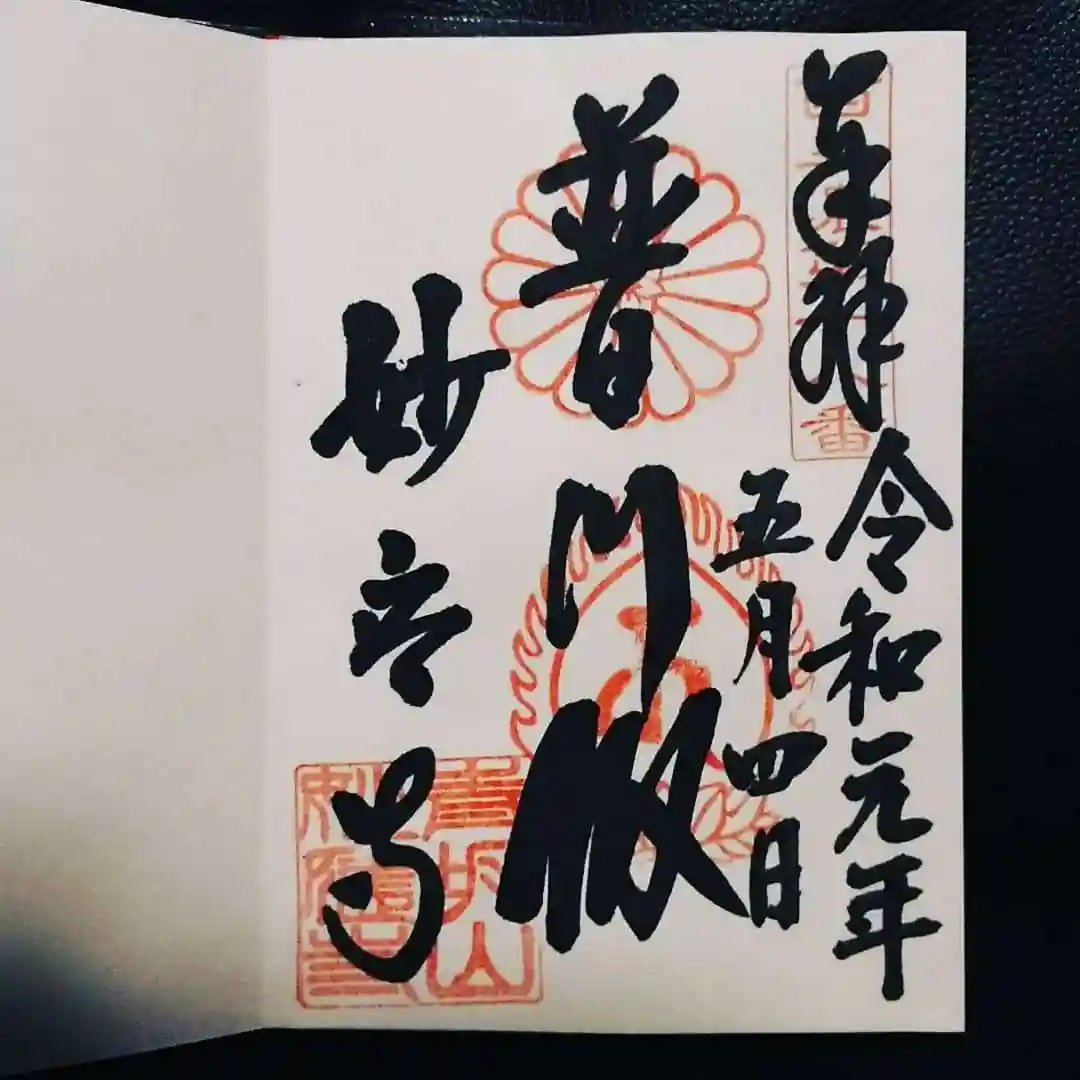 奉拝 令和元年
五月四日
普門殿
妙音寺